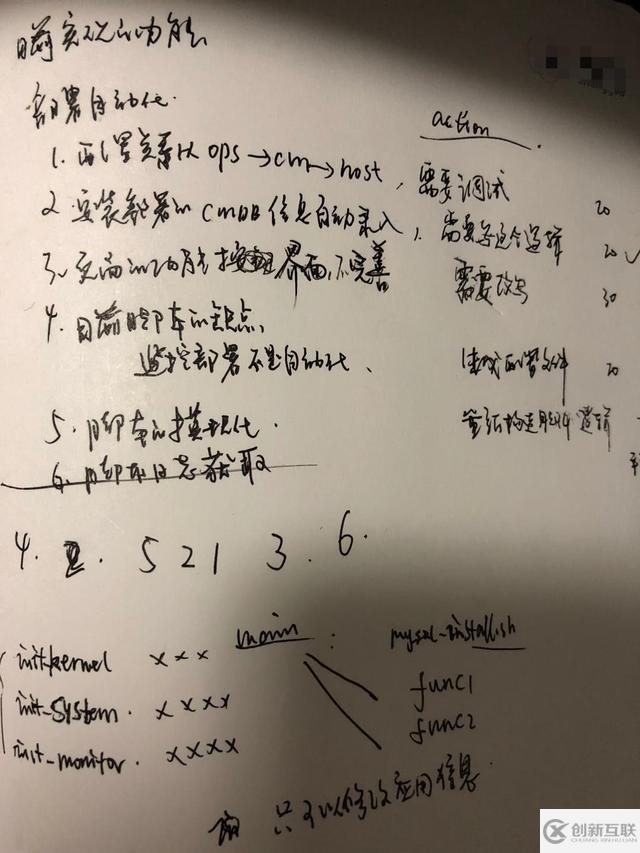 目前实现的功能
部署自动化
action
1. 配置关系从 ops→cm→host, 需要调试 20
2. 安装部署的 CMDB 信息自动录入, 需要写这个逻辑 20
3. 页面的功能按钮界面,不完善 需要改写 30
4. 目前脚本的缺点,
监控部署不是自动化、 生成配置文件 20
5. 脚本的模块化. 重新构造脚本逻辑
6. 脚本日志获取
4. 5 2 1 3. 6.
main : mysql-install.sh
init-kernel xxx
func1
init-system. xxxx
func2
init-monitor. xxxx
只可以修改应用信息.
创新互联
CHUANG XIN HU LIAN